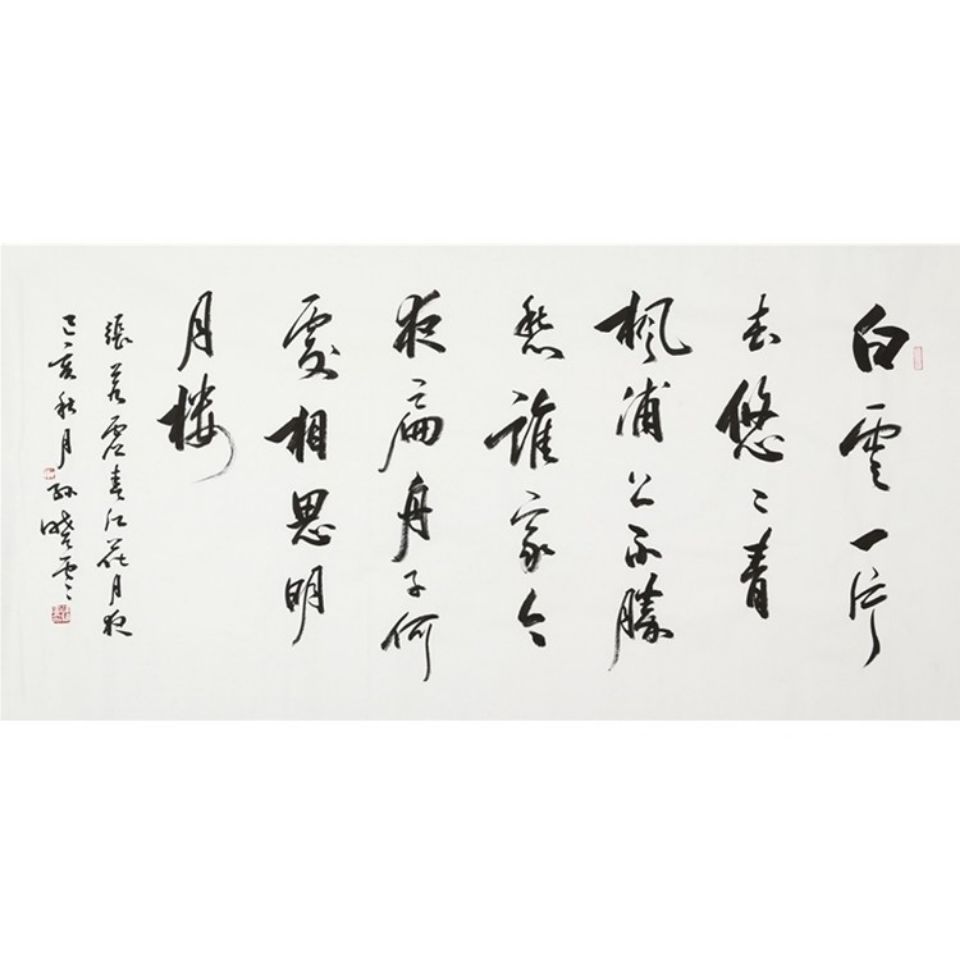 白雲一片
去悠〻青
楓浦上不勝
愁誰家今
夜扁舟子何
處相思明
月楼
張若虚春江花月夜
己亥秋月孫曉雲